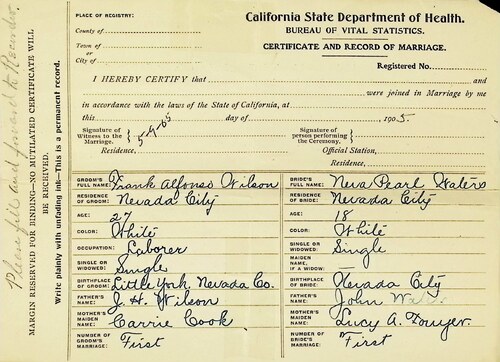 PLACE OF REGISTRY:
County of
Town of
or
City of
California State Department of Health.
BUREAU OF VITAL STATISTICS.
CERTIFICATE AND RECORD OF MARRIAGE.
Registered No.
I HEREBY CERTIFY that and
were joined in Marriage by me
in accordance with the laws of the State of California, at
this day of , 1905.
Signature of Witness to the Marriage. 5-9-05
Signature of person performing the Ceremony.
Residence, Official Station,
Residence,
GROOM'S FULL NAME: Frank Alfonso Wilson
BRIDE'S FULL NAME: Neva Pearl Waters
RESIDENCE OF GROOM: Nevada City
RESIDENCE OF BRIDE: Nevada City
AGE: 27
AGE: 18
COLOR: White
COLOR: White
OCCUPATION: Laborer
SINGLE OR WIDOWED: Single
SINGLE OR WIDOWED: Single
MAIDEN NAME, IF A WIDOW:
BIRTHPLACE OF GROOM: Little York, Nevada Co.
BIRTHPLACE OF BRIDE: Nevada City
FATHER'S NAME: J. H. Wilson
FATHER'S NAME: John
MOTHER'S MAIDEN NAME: Carrie Cook
MOTHER'S MAIDEN NAME: Lucy A. Dwyer.
NUMBER OF GROOM'S MARRIAGE: First
NUMBER OF BRIDE'S MARRIAGE: First
Please fill and forward to Recorder
MARGIN RESERVED FOR BINDING—NO MUTILATED CERTIFICATE WILL BE RECEIVED.
Write plainly with unfading ink—This is a permanent record.